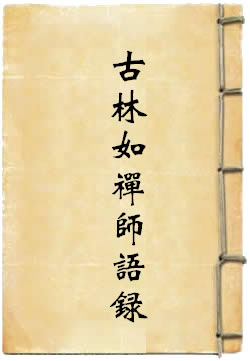 古林如禪師語録